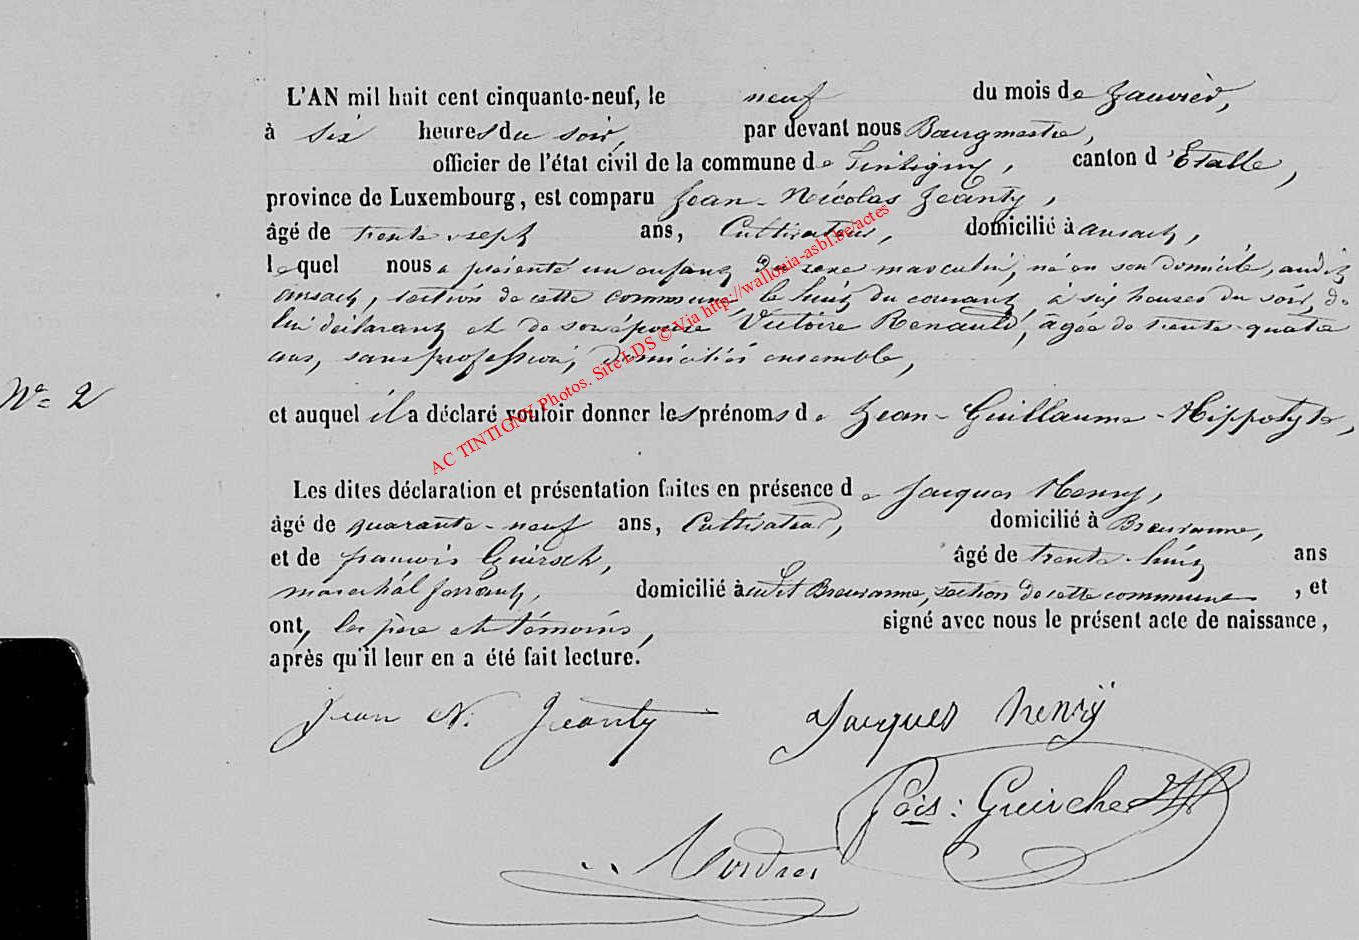 L'AN mil huit cent cinquante-neuf, le neuf du mois de Janvier,
à six heures du soir, par devant nous Bourgmestre,
officier de l'état civil de la commune de Tintigny, canton d'Etalle,
province de Luxembourg, est comparu Jean-Nicolas Jeanty,
âgé de trente-sept ans, Cultivateur, domicilié à ansart,
lequel nous a présenté un enfant du sexe masculin, né en son domicile, audit
ansart, section de cette commune, le huit du courant, à six heures du soir, de
lui déclarant et de son épouse Victoire Renauld, âgée de trente-quatre
ans, sans profession, domiciliés ensemble,
N° 2
et auquel il a déclaré vouloir donner les prénoms de Jean-Guillaume-Hippolyte,
Les dites déclaration et présentation faites en présence de Jacques Henry,
âgé de quarante-neuf ans, Cultivateur, domicilié à Breuvanne,
et de françois Guirsch, âgé de trente-huit ans
maréchal ferrant, domicilié audit Breuvanne, section de cette commune, et
ont, les père et témoins, signé avec nous le présent acte de naissance,
après qu'il leur en a été fait lecture.
Jean N. Jeanty Jacques henrÿ
fçois: Guirche
AC TINTIGNY Photos. Site LDS © Via http://wallonia-asbl.be/actes